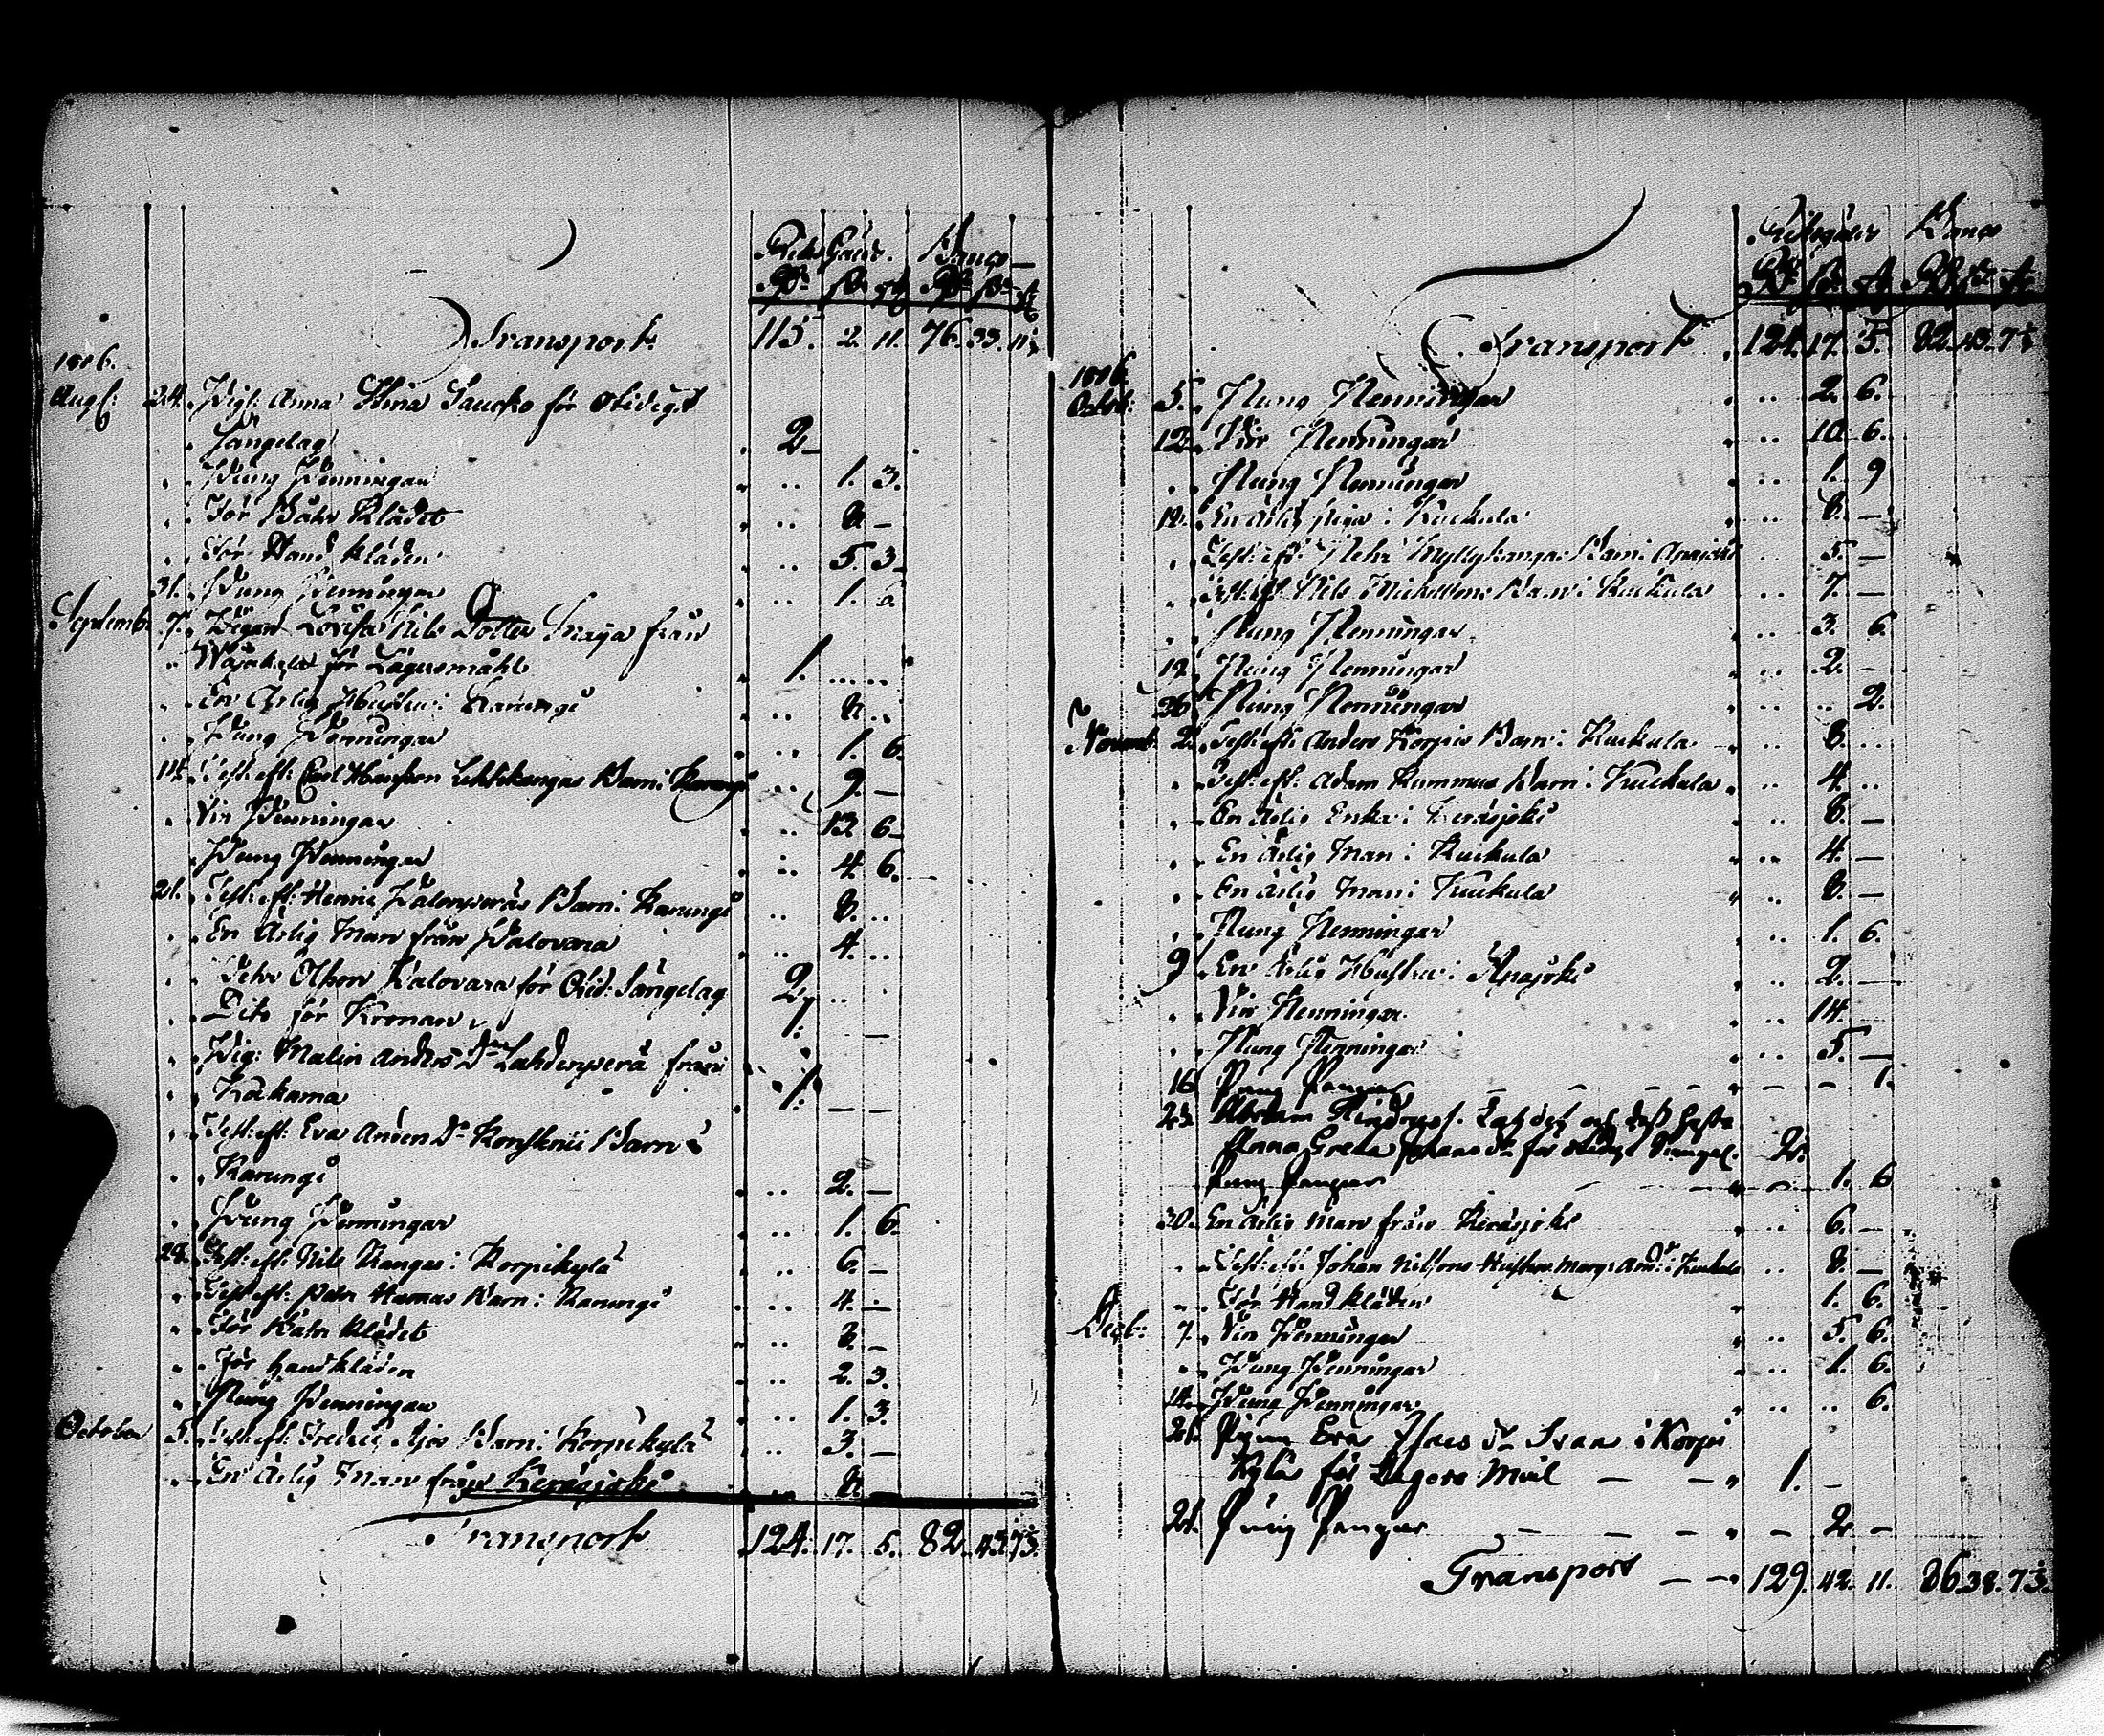 Riks Gäld. Banco
Rdr ß rst Rdr ß rst
Transport 115. 2. 11. 76. 33. 11
1806.
Aug: 24. Pig: Anna Stina Saucko för otidigt
Sängelag 2
Pung Penningar .. 1. 3.
För Bahr Klädet .. 8 –
För Hand kläden .. 5. 3
31. Pung Penningar .. 1.
Septemb. 7. Pigan Lovisa Nils Dotter Maija från
för Lägersmåhl 1. .. ..
En Ärlig Hustru i Karungi .. 8 ..
Pung Penningar .. 1. 6.
14. Test: eft: Carl Hansson Lehtikangas Barn i Karungi .. 9. –
Vin Penningar .. 13. 6
Pung Penningar .. 4. 6.
21. Test: eft: Henric Palonperäs Barn i Karungi .. 8. ..
En Ärlig Man från Palovara .. 4. ..
Petr Olsson Palovara för Otid: Sängelag 2. ..
Dito för Kronan 1. –
Pig: Malin Anders Dr Lahdenperä från
Kakama 1. – –
Test: eft: Eva Anders Dr Barn i
Karungi .. 2. –
Pung Penningar .. 1. 6.
28. Test: eft: Nils Kangas i Korpikylä .. 6. –
Test: eft: Petr Hannas Barn i Karungi .. 4. –
För Bahr klädet .. 8. –
För Handkläden .. 2. 3.
Pung Penningar .. 1. 3.
October 5. Test: eft: Fredric Ajos Barn i Korpikylä .. 3. –
En Ärlig Man från Keräsjoki .. 8. –
Transport 124. 17. 5. 82. 43. 7½.
Riksgäld Banco
Rdr ß rst Rdr ß rst
Transport 124. 17. 5. 82. 43. 7½
1806.
Octob: 5. Pung Penningar .. 2. 6.
12. Vin Penningar .. 10. 6.
Pung Penningar .. 1. 9
12. En Ärlig piga i Kuckula .. 8. –
Test: eft: Petr Myllykangas Barn i .. 5. –
Test: eft: Nils Mickelsons Barn i Kuckula .. 7. –
Pung Penningar .. 3. 6.
19. Pung Penningar .. 2. –
26. Pung Penningar .. .. 2.
Novemb: 2. Test: eft: Anders Korpis Barn i Kuckula .. 8. ..
Test: eft: Adam Kummus Barn i Kuckula .. 4. ..
En Ärlig Enka i Keräsjoki .. 8. –
En Ärlig Man i Kuckula .. 4. –
En Ärlig Man i Kuckula .. 8. –
Pung Penningar .. 1. 6.
9. En Ärlig Hustru i .. 2. –
Vin Penningar .. 14. –
Pung Penningar .. 5. –
16. Pung Pengar – – 1.
23. Abram Hindrics. och dess Fästm
Anna Greta Johans Dr för otidigt Sängel. 2.
Pung Pengar – 1. 6
30. En Ärlig Man från Keräsjoki .. 6. –
Test: eft: Johan Nilsons Hustru Marg: And: Dr i Kuckula .. 8. –
För Hand kläden 1. 6.
Decb: 7. Vin Penningar .. 5. 6.
Pung Penningar .. 1. 6.
14. Pung Penningar .. .. 6.
21. Pigan Eva Isacs Dr i Korpi
Kyla för Lägers Mål – – 1. –
21. Pung Pengar – – – – 2 –
Transport – – 129. 42. 11. 86. 38. 7½.